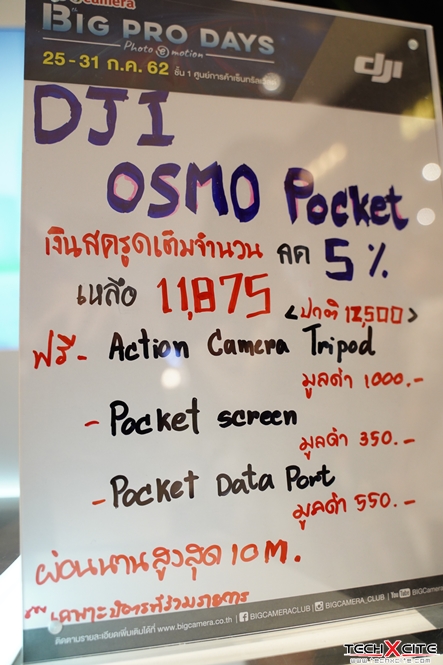 camera
BIG PRO DAYS
Photo e motion
25-31 ก.ค. 62 ชั้น 1 ศูนย์การค้าเซ็นทรัล
dji
DJI
OSMO Pocket
เงินสดรูดเต็มจำนวน ลด 5%
เหลือ 11,875 <ปกติ 12,500>
ฟรี - Action Camera Tripod
มูลค่า 1000.-
- Pocket screen
มูลค่า 350.-
- Pocket Data Port
มูลค่า 550.-
ผ่อนนานสูงสุด 10 M.
เฉพาะบัตรที่ร่วมรายการ
ติดตามรายละเอียดเพิ่มเติมได้ที่ www.bigcamera.co.th | BIGCAMERACLUB | BIGCAMERA_CLUB | You Tube BIGCAMERA Club
TECHXCITE
www.techxcite.com